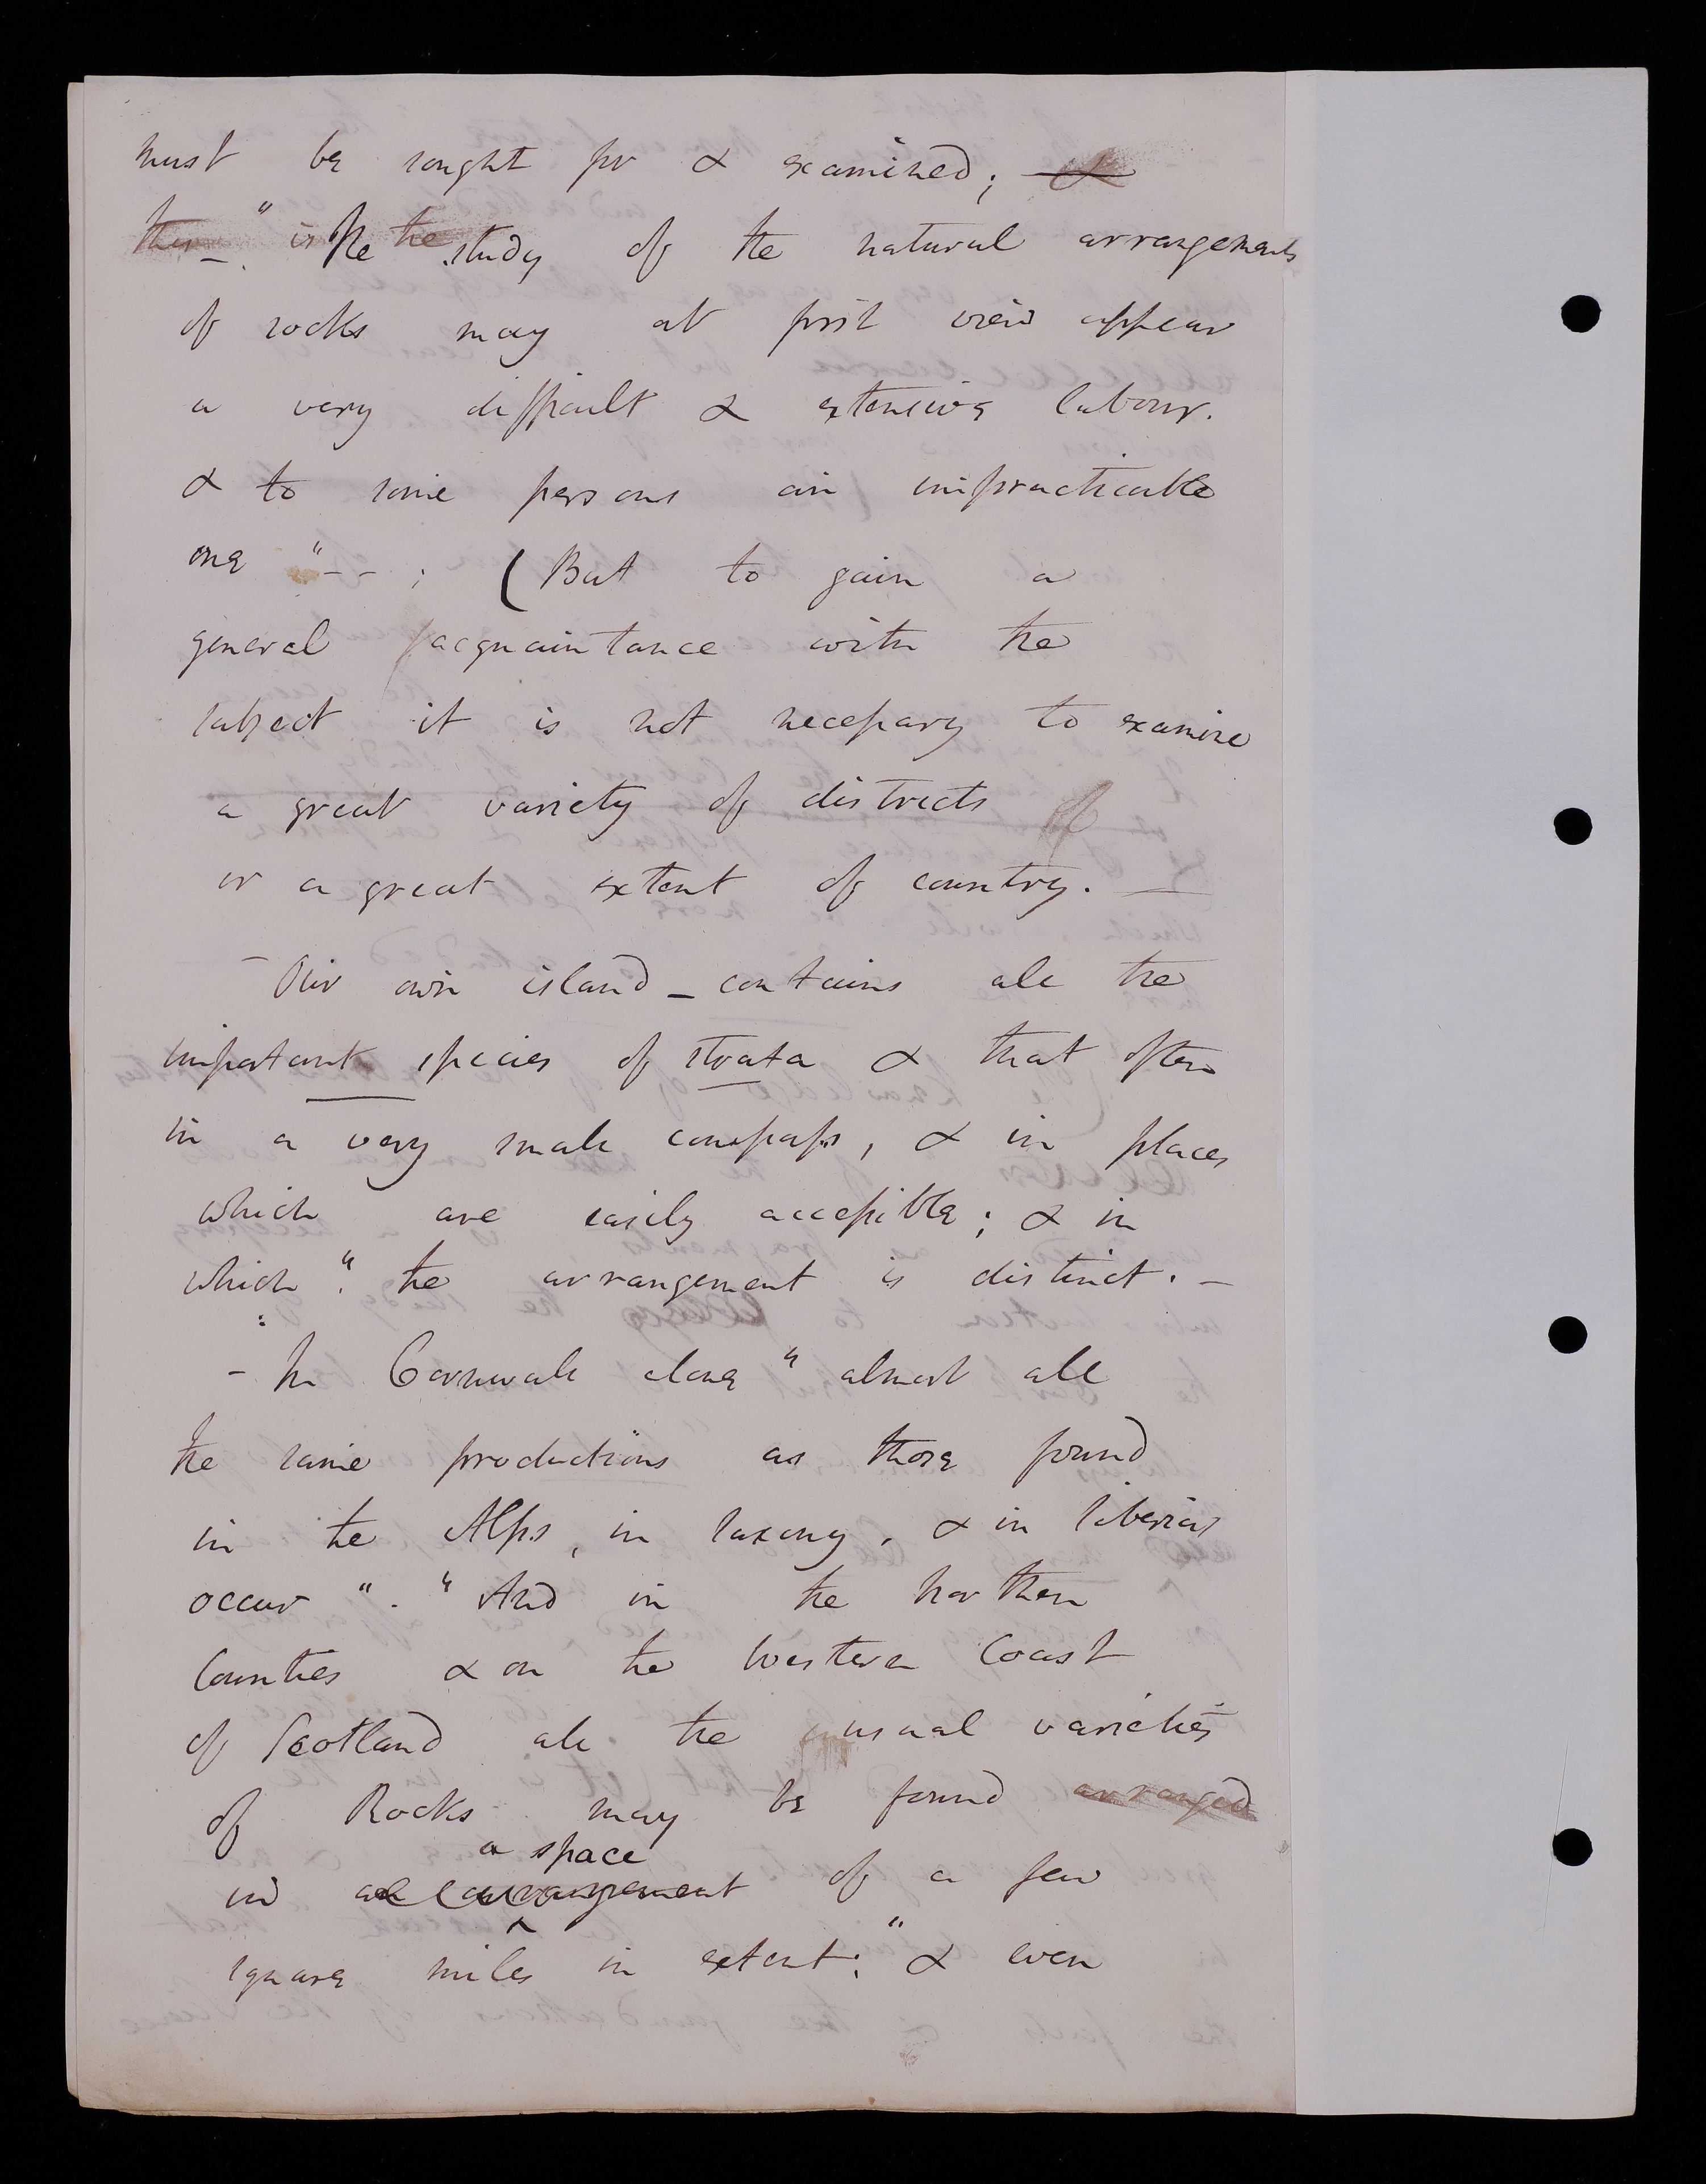 must be sought for & examined; &
this — " is The the study of the natural arrangements
of rocks may at first view appear
a very difficult & extensive labour.
& to some persons an impracticable
one " - - ; ( But to gain a
general acquaintance with the
subject it is not necessary to examine
a great variety of districts
or a great extent of country. —
— Our own island — contains all the
important species of strata & that often
in a very small compass, & in places
which are easily accessible; & in
which ". the arrangement is distinct. —
— In Cornwall alone " almost all
the same productions as those found
in the Alps, in Saxony, & in Siberia,
occur " . " And in the northern
Counties & on the Western Coast
of Scotland all the usual varieties
of Rocks may be found arranged
a space
in an arrangement of a few
square miles in extent; " & even